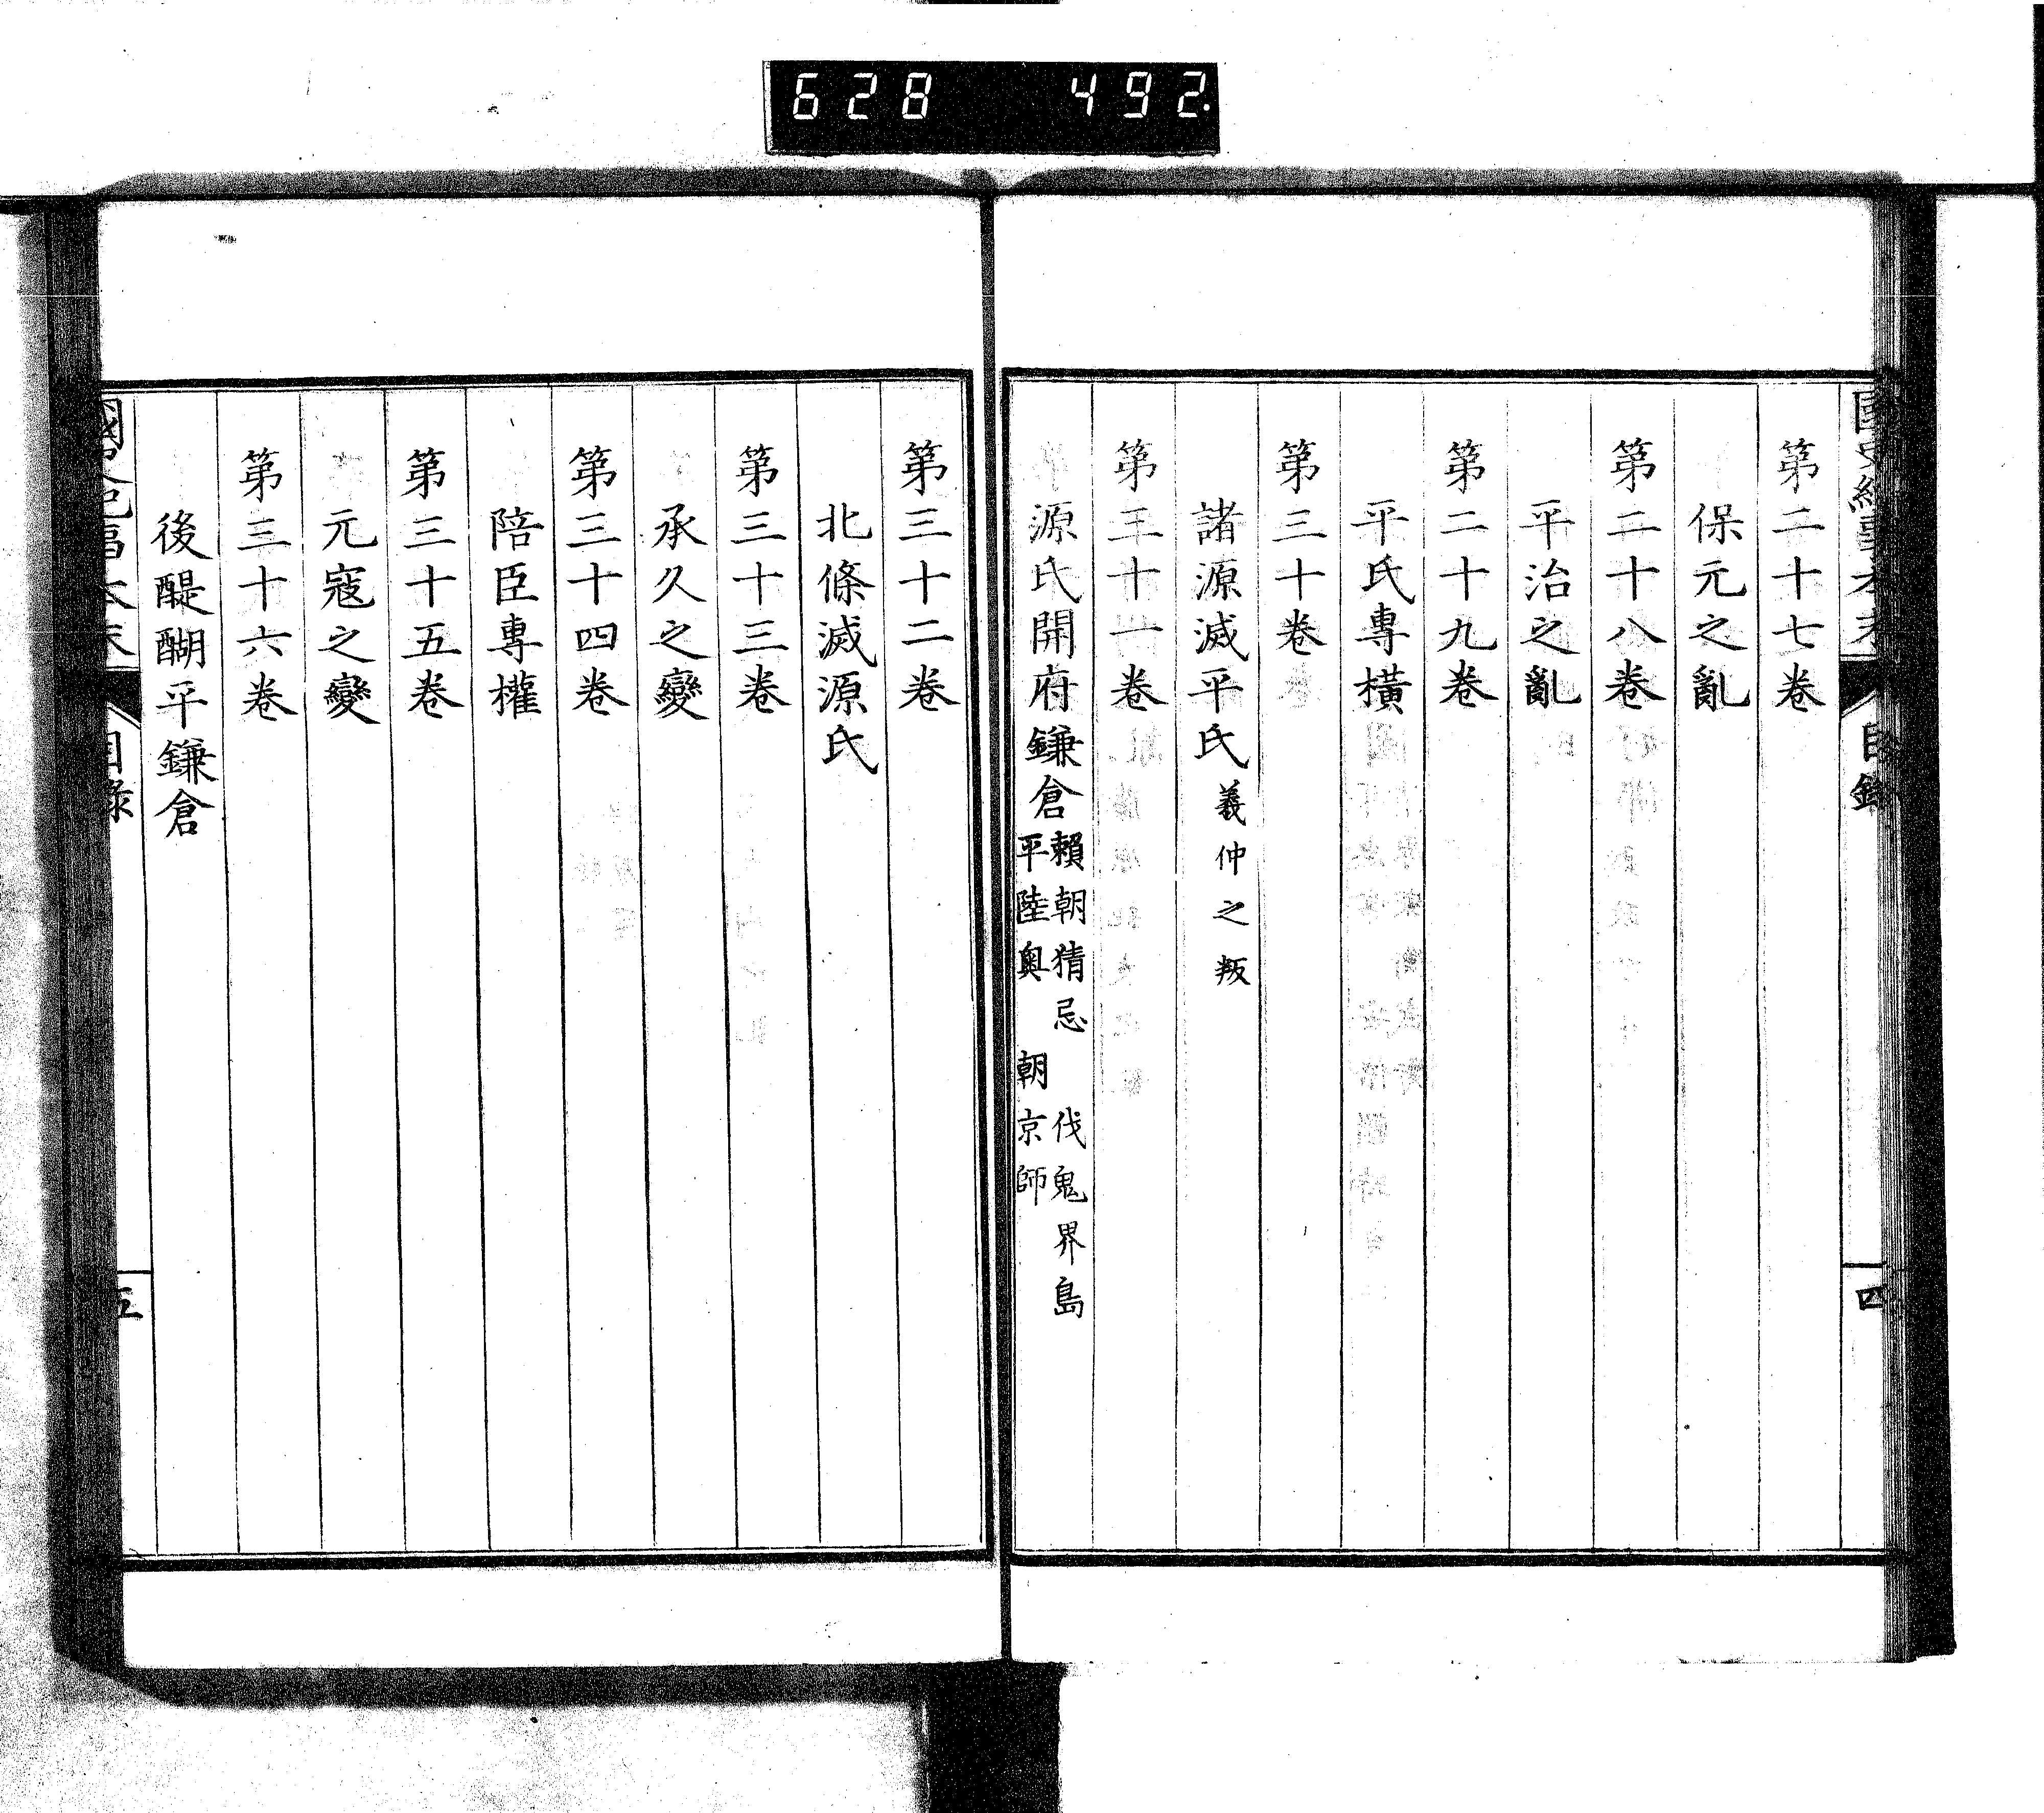 628 492.
第二十七卷
保元之亂
第二十八卷
平治之亂
第二十九卷
平氏專橫
第三十卷
諸源滅平氏 義仲之叛
第三十一卷
源氏開府鎌倉 賴朝猜忌 伐鬼界島
平陸奧 朝京師
目錄
四
第三十二卷
北條滅源氏
第三十三卷
承久之變
第三十四卷
陪臣專權
第三十五卷
元寇之變
第三十六卷
後醍醐平鎌倉
目錄
五